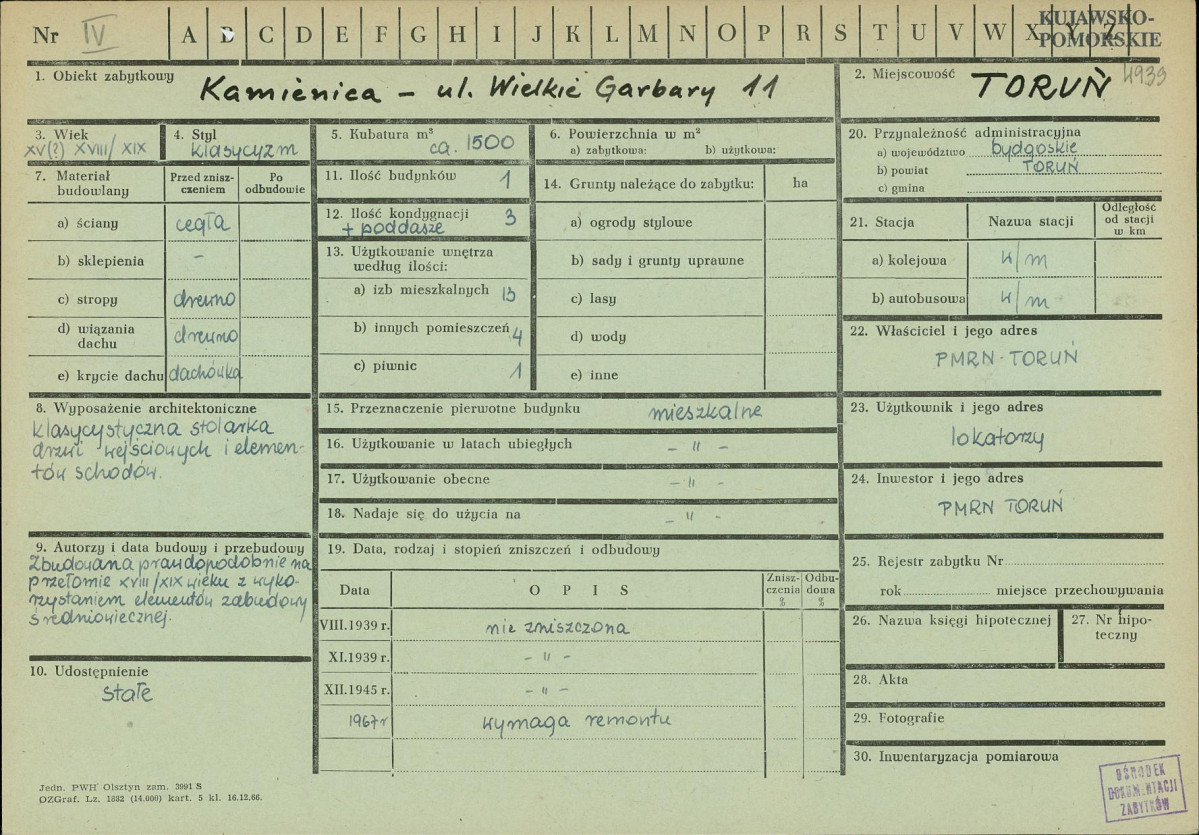 Nr IV
A B C D E F G H I J K L M N O P R S T U V W X Y Z
KUJAWSKO-
POMORSKIE
1. Obiekt zabytkowy
Kamienica – ul. Wielkie Garbary 11
2. Miejscowość
TORUŃ 4939
3. Wiek
XV(?) XVIII/XIX
4. Styl
klasycyzm
5. Kubatura m³
ca. 1500
6. Powierzchnia w m²
a) zabytkowa: b) użytkowa:
7. Materiał
budowlany
Przed znisz-
czeniem
Po
odbudowie
a) ściany cegła
b) sklepienia –
c) stropy drewno
d) wiązania
dachu drewno
e) krycie dachu dachówka
8. Wyposażenie architektoniczne
klasycystyczna stolarka
drzwi wejściowych i elemen-
tów schodów.
9. Autorzy i data budowy i przebudowy
Zbudowana prawdopodobnie na
przełomie XVIII/XIX wieku z wyko-
rzystaniem elementów zabudowy
średniowiecznej.
10. Udostępnienie
stałe
11. Ilość budynków 1
12. Ilość kondygnacji 3
+ poddasze
13. Użytkowanie wnętrza
według ilości:
a) izb mieszkalnych 13
b) innych pomieszczeń 4
c) piwnic 1
14. Grunty należące do zabytku: ha
a) ogrody stylowe
b) sady i grunty uprawne
c) lasy
d) wody
e) inne
15. Przeznaczenie pierwotne budynku mieszkalne
16. Użytkowanie w latach ubiegłych – " –
17. Użytkowanie obecne – " –
18. Nadaje się do użycia na – " –
19. Data, rodzaj i stopień zniszczeń i odbudowy
Data OPIS
Znisz-
czenia
%
Odbu-
dowa
%
VIII.1939 r. nie zniszczona
XI.1939 r. – " –
XII.1945 r. – " –
1967 r wymaga remontu
20. Przynależność administracyjna
a) województwo bydgoskie
b) powiat TORUŃ
c) gmina
21. Stacja Nazwa stacji
Odległość
od stacji
w km
a) kolejowa w/m
b) autobusowa w/m
22. Właściciel i jego adres
PMRN - TORUŃ
23. Użytkownik i jego adres
lokatorzy
24. Inwestor i jego adres
PMRN TORUŃ
25. Rejestr zabytku Nr
rok miejsce przechowywania
26. Nazwa księgi hipotecznej
27. Nr hipo-
teczny
28. Akta
29. Fotografie
30. Inwentaryzacja pomiarowa
OŚRODEK
DOKUMENTACJI
ZABYTKÓW
Jedn. PWH Olsztyn zam. 3991 S
OZGraf. Lz. 1882 (14.000) kart. 5 kl. 16.12.66.